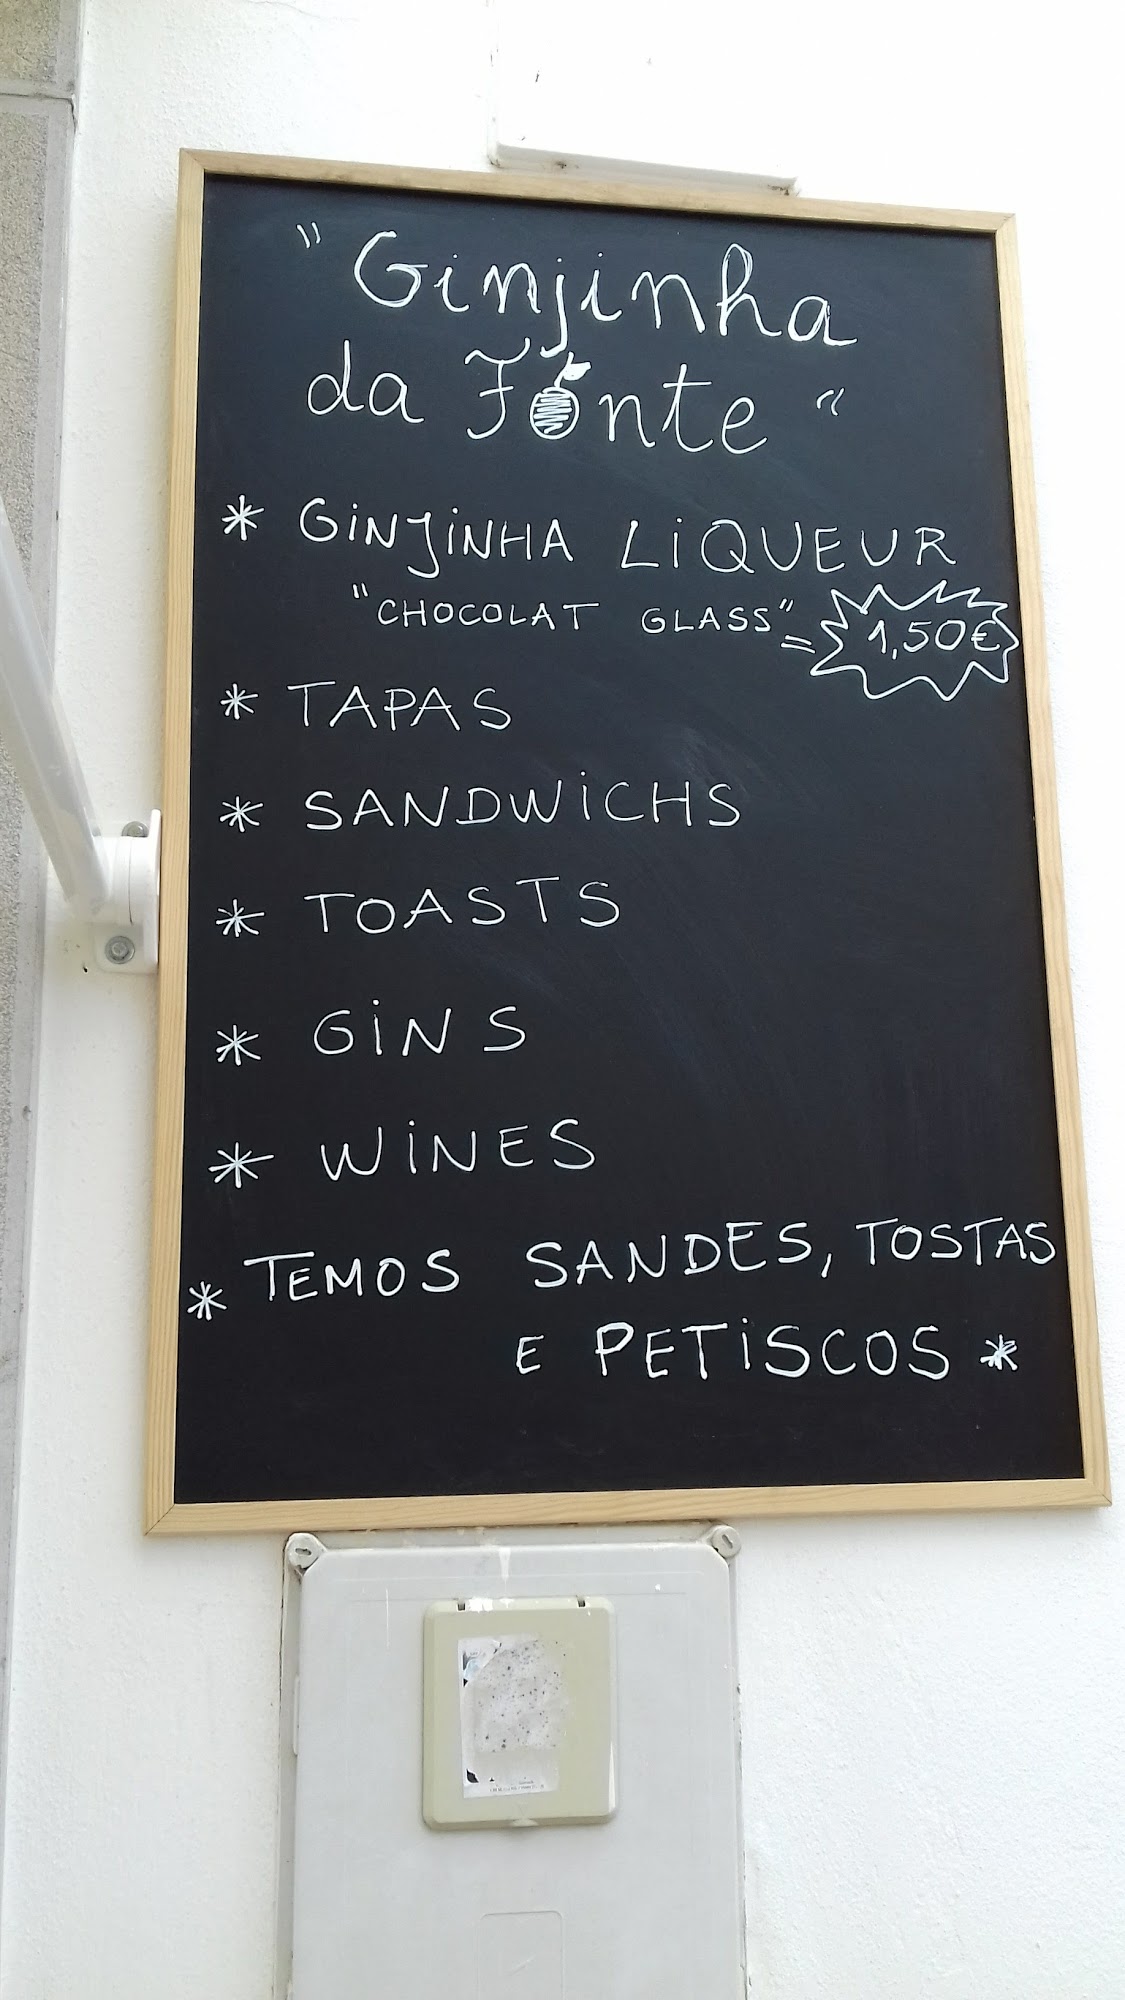 " Ginjinha
da Fonte "
* GINJINHA LIQUEUR
"CHOCOLAT GLASS" = 1,50€
* TAPAS
* SANDWICHS
* TOASTS
* GINS
* WINES
* TEMOS SANDES, TOSTAS
E PETISCOS *